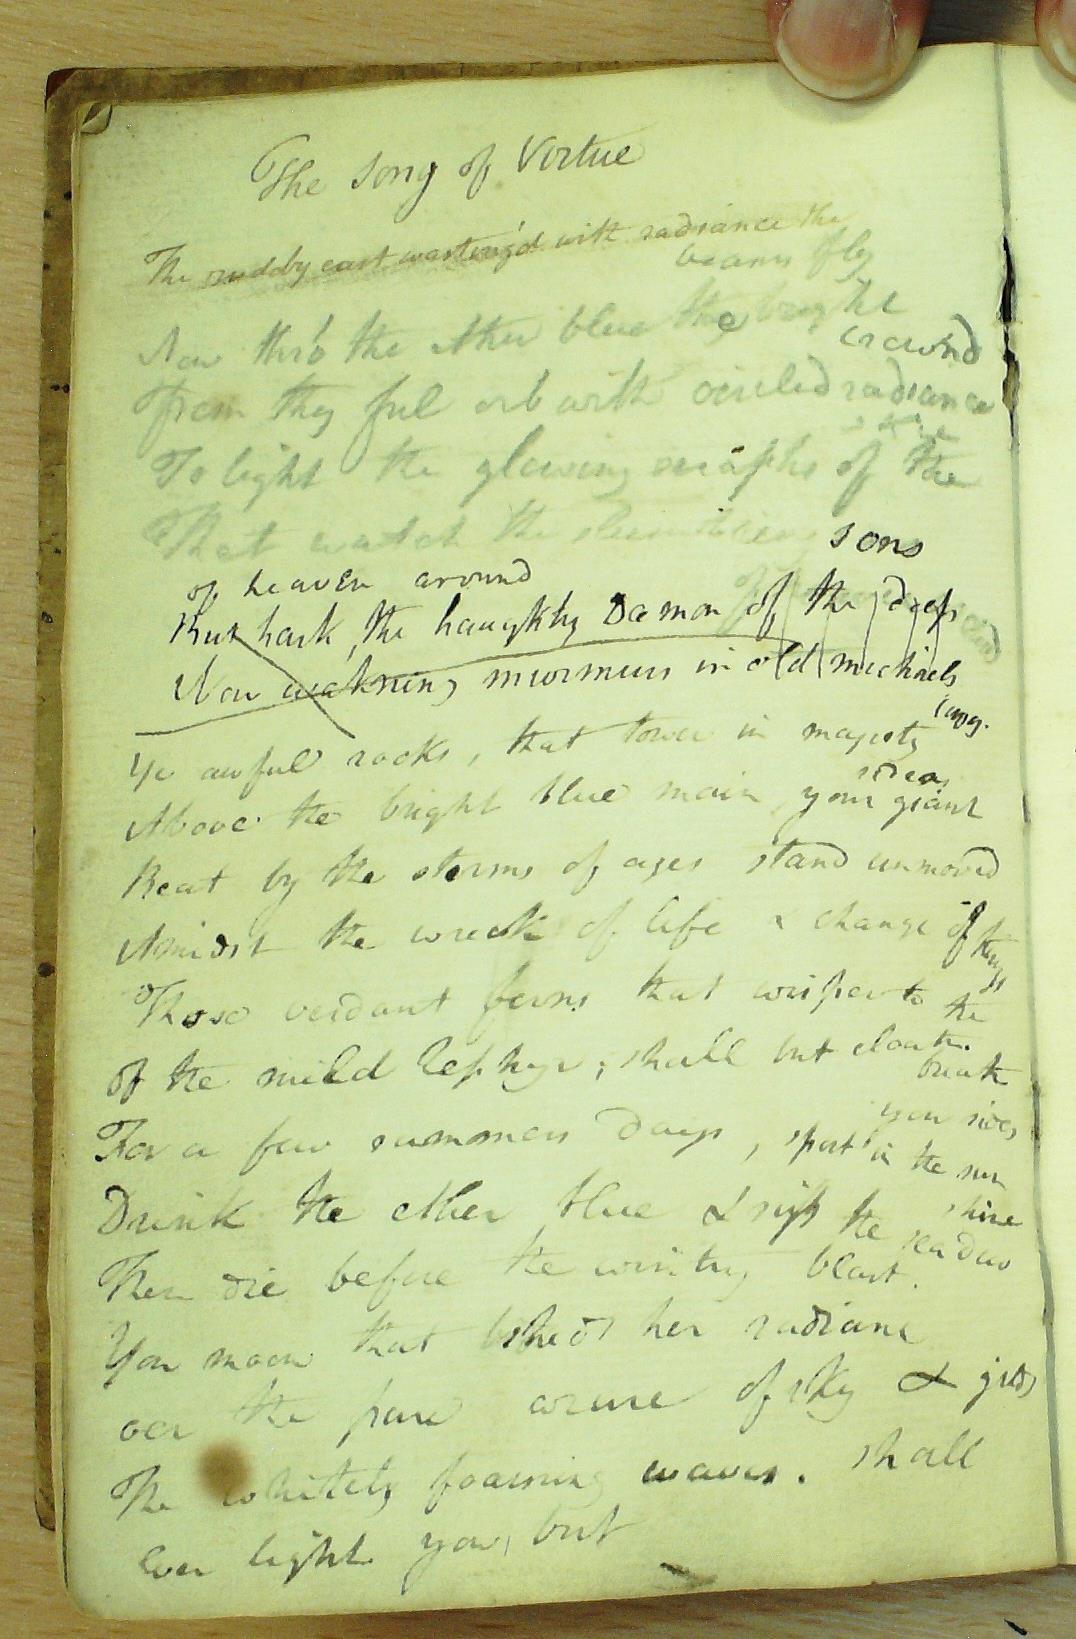 The Song of Virtue
The ruddy east
with radiance the
beams fly
Now thro the ether blue the bright
crownd
From thy ful orb with circled radiance
To light the glowing seraphs of the
That watch the
sons
of heaven around
But hark, the haughty Dæmon of the deep
Now wakning murmurs in old michaels
Ye awful rocks, that tower in majesty
Above the bright blue main, your giant
sides
Beat by the storms of ages stand unmoved
Amidst the wreck of life & change of things
Those verdant ferns that wisper to
the
of the mild Zephyr; shall but cloath
breath
your sides
For a few summers days, sport in the sun
shine
Drink the ether blue & sip the
Then die before the wintry blast.
Yon moon that sheds her radiance
oer the pure azure of sky & gilds
The whitely foaming waves. shall
Ever light you, but